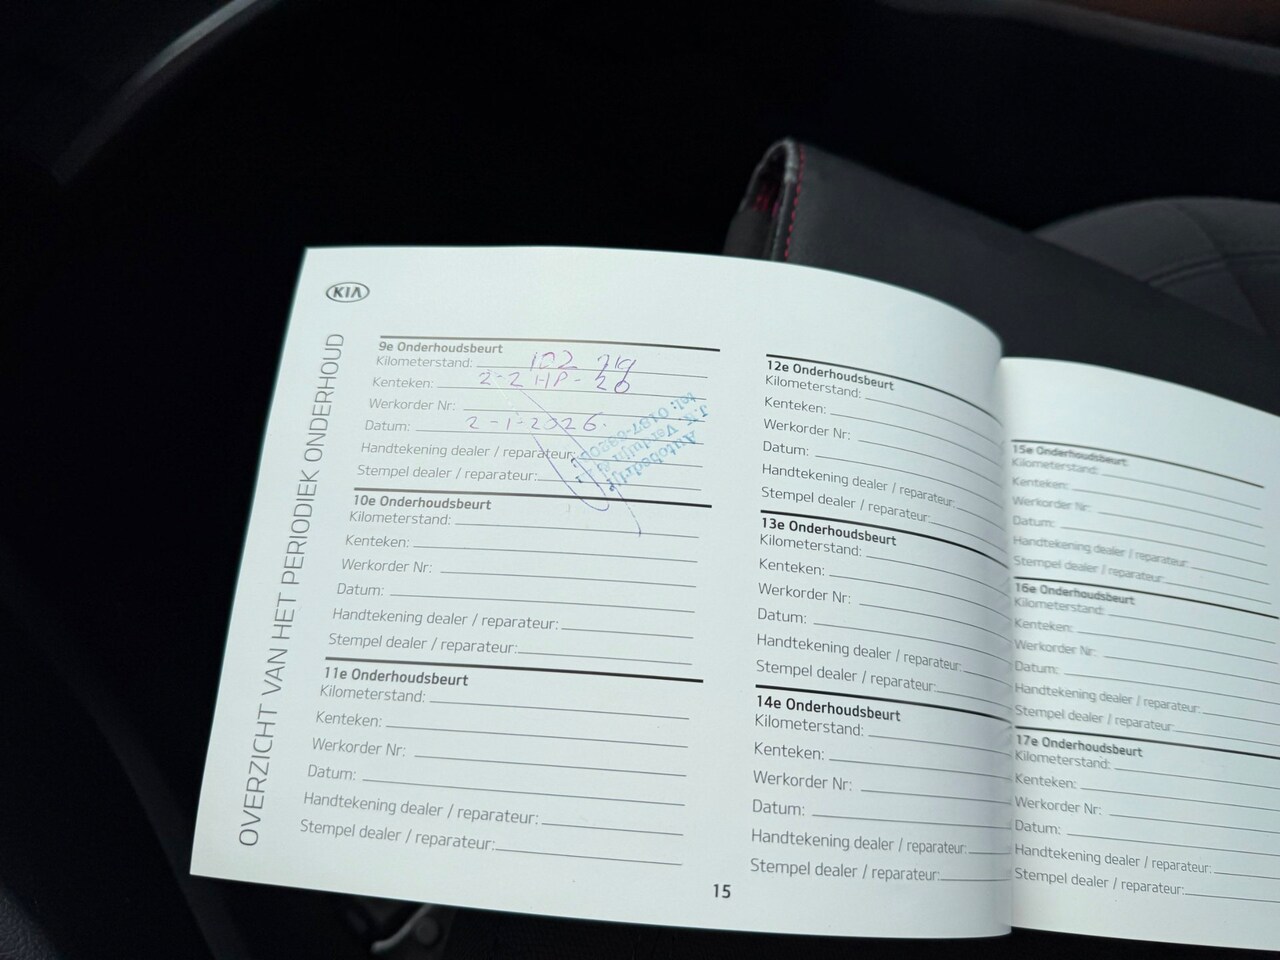 KIA
OVERZICHT VAN HET PERIODIEK ONDERHOUD
9e Onderhoudsbeurt
Kilometerstand: 102 719
Kenteken: 2-2 HP-20
Werkorder Nr:
Datum: 2-1-2026.
Handtekening dealer / reparateur:
Stempel dealer / reparateur:
Autobedrijf
J.F. Verduijn
tel: 0187-
10e Onderhoudsbeurt
Kilometerstand:
Kenteken:
Werkorder Nr:
Datum:
Handtekening dealer / reparateur:
Stempel dealer / reparateur:
11e Onderhoudsbeurt
Kilometerstand:
Kenteken:
Werkorder Nr:
Datum:
Handtekening dealer / reparateur:
Stempel dealer / reparateur:
15
12e Onderhoudsbeurt
Kilometerstand:
Kenteken:
Werkorder Nr:
Datum:
Handtekening dealer / reparateur:
Stempel dealer / reparateur:
13e Onderhoudsbeurt
Kilometerstand:
Kenteken:
Werkorder Nr:
Datum:
Handtekening dealer / reparateur:
Stempel dealer / reparateur:
14e Onderhoudsbeurt
Kilometerstand:
Kenteken:
Werkorder Nr:
Datum:
Handtekening dealer / reparateur:
Stempel dealer / reparateur:
15e Onderhoudsbeurt
Kilometerstand:
Kenteken:
Werkorder Nr:
Datum:
Handtekening dealer / reparateur:
Stempel dealer / reparateur:
16e Onderhoudsbeurt
Kilometerstand:
Kenteken:
Werkorder Nr:
Datum:
Handtekening dealer / reparateur:
Stempel dealer / reparateur:
17e Onderhoudsbeurt
Kilometerstand:
Kenteken:
Werkorder Nr:
Datum:
Handtekening dealer / reparateur:
Stempel dealer / reparateur: